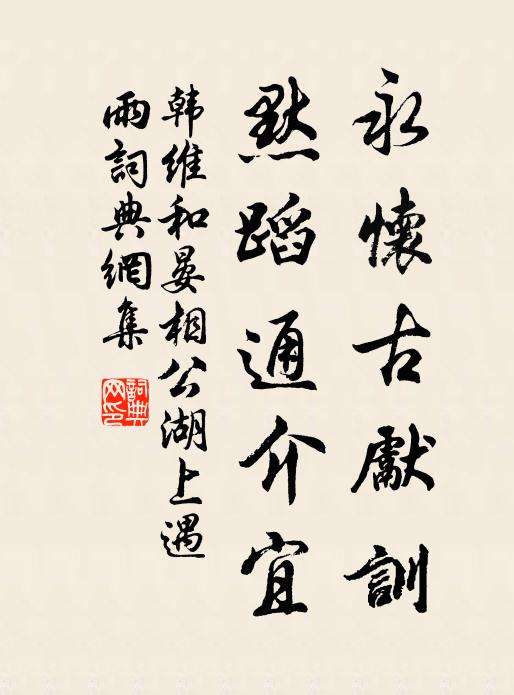 永懷古獻訓
默蹈通介宜
韓維和晏相公湖上遇
雨詞典網集
詞典
网印